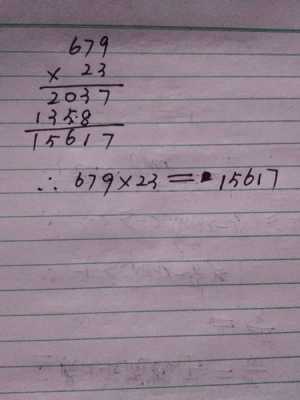 679
× 23
2037
1358
15617
∴ 679×23 = 15617